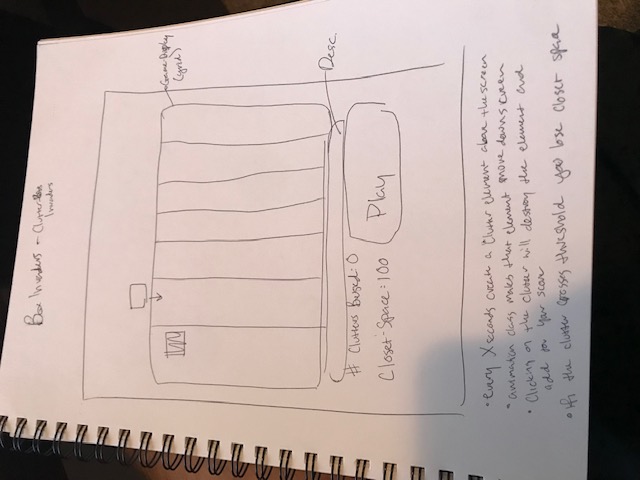 Box Invaders - Clutter
Invaders
Game-Display
(grid)
Desc.
# Clutters Busted: 0
Closet-Space: 100
Play
• every X seconds create a Clutter element above the screen
• animation class makes that element move down screen
• Clicking on the clutter will destroy the element and
add to your score
• If the clutter crosses threshold you lose closet space